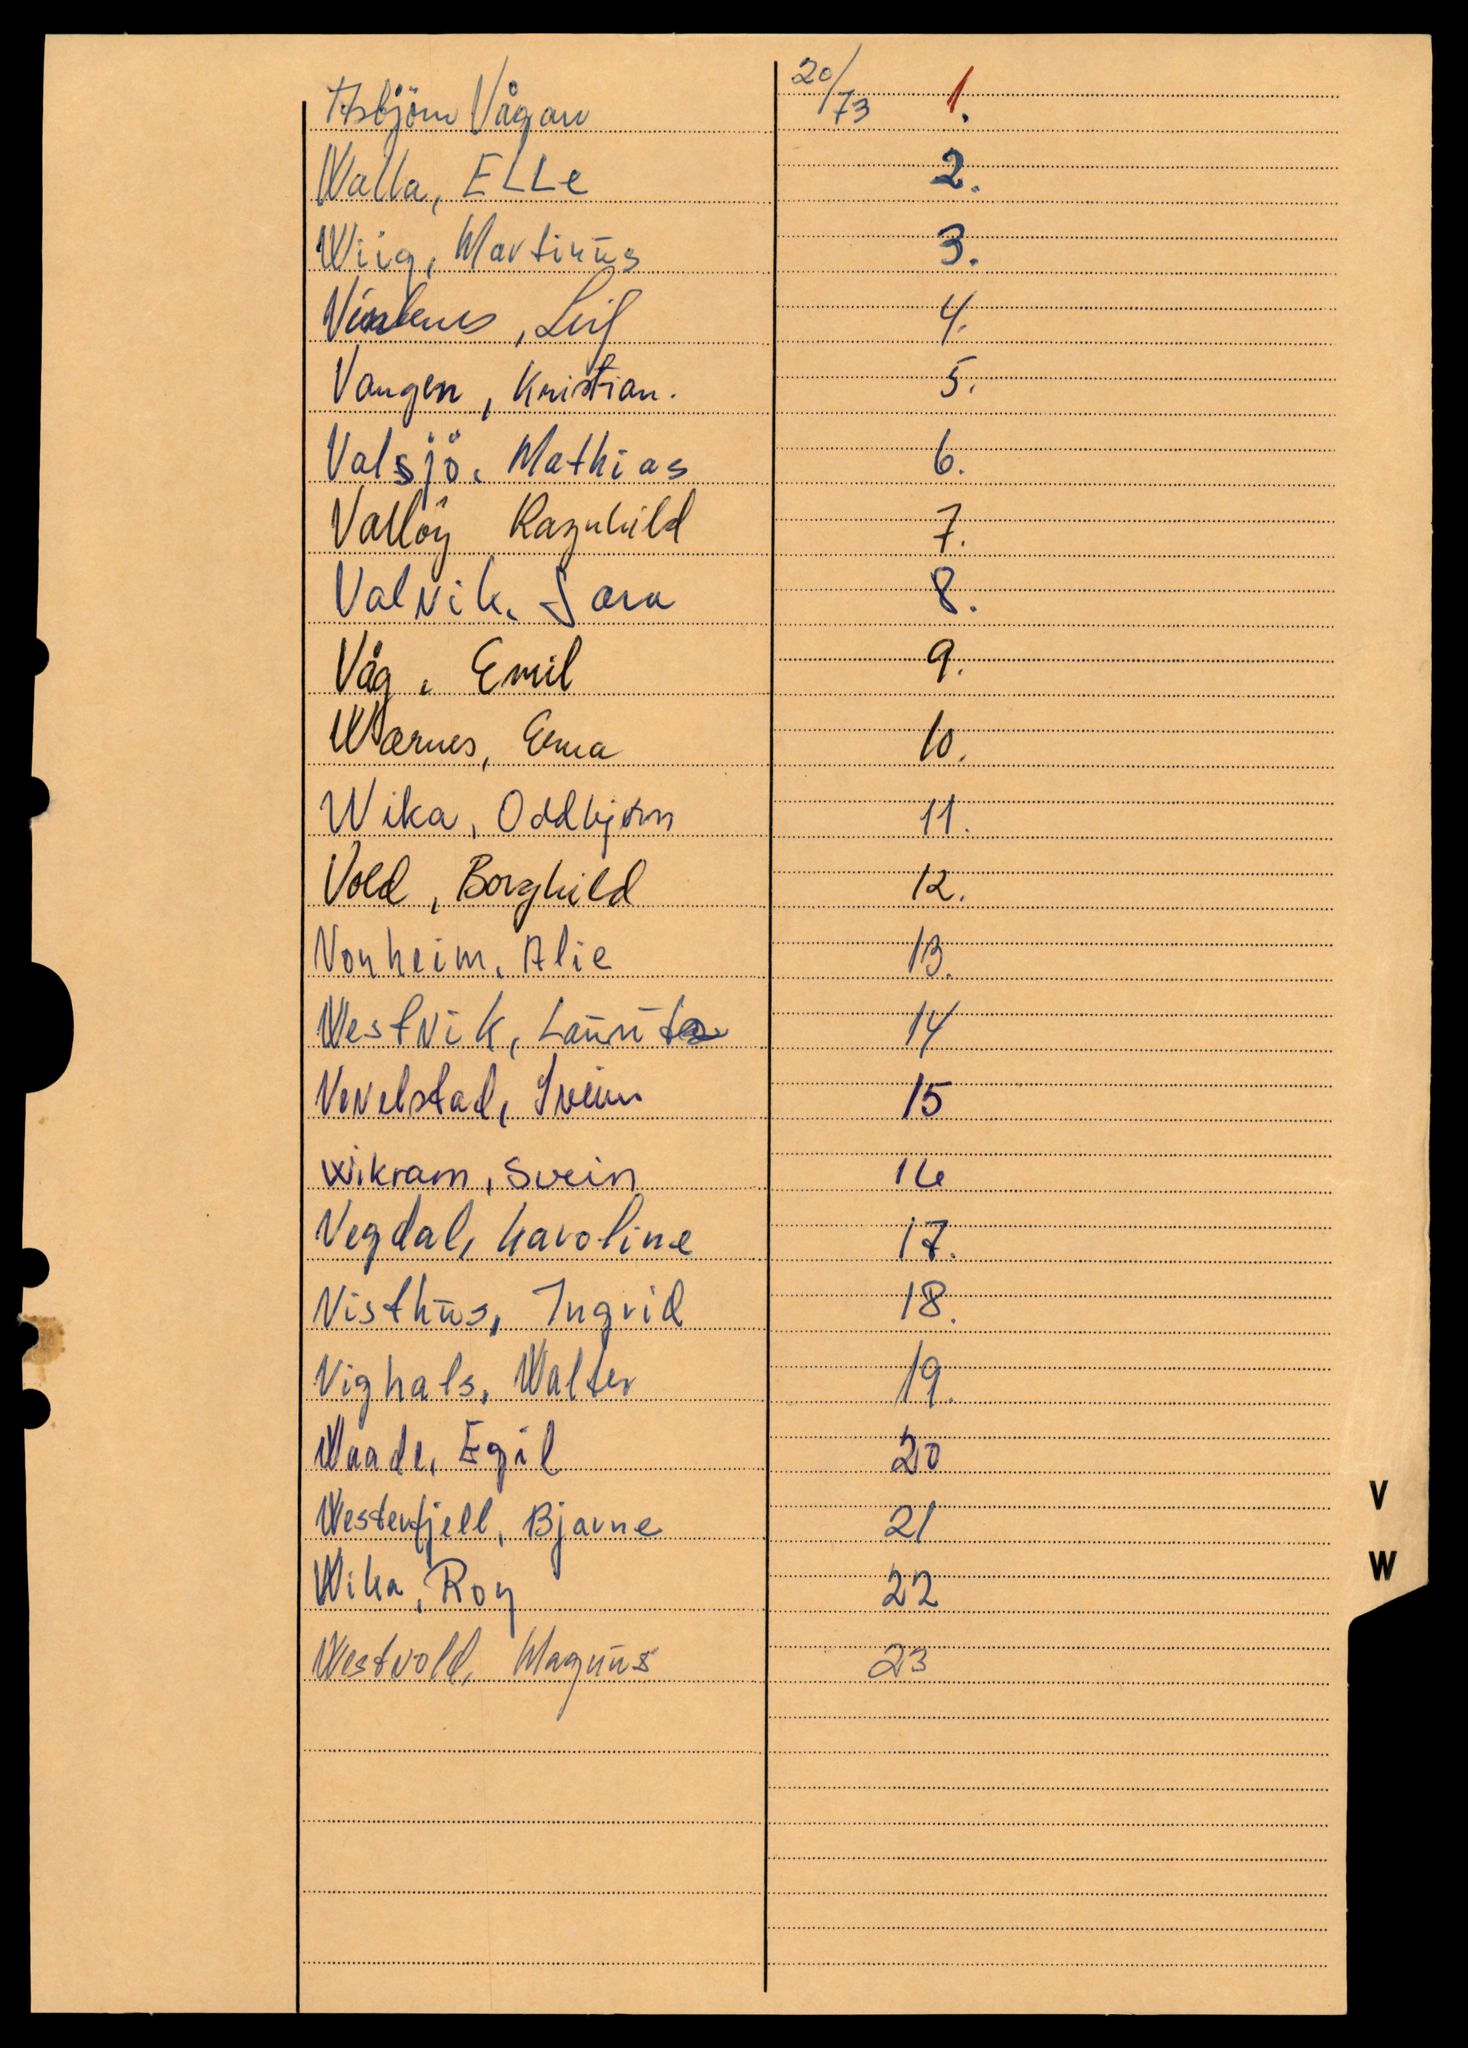 Asbjörn Vågan 20/73 1.
Walla, ELLe 2.
Wiig, Martinūs 3.
Leif 4.
Vangen, Kristian. 5.
Valsjö, Mathias 6.
Valløy Ragnhild 7.
Valvik, Sara 8.
Våg, Emil 9.
Wærnes, Erna 10.
Wika, Oddbjørn 11.
Vold, Borghild 12.
Vonheim, Alie 13.
Westvik, 14
Vevelstad, Svein 15
Wikram, Svein 16
Vegdal, Karoline 17.
Visthūs, Ingrid 18.
Vighals, Walter 19.
Waade, Egil 20
Westerfjell, Bjarne 21
Wika, Roy 22
Westvold, Magnūs 23
V
W